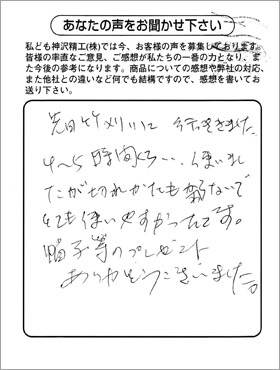 あなたの声をお聞かせ下さい
私ども神沢精工(株)では今、お客様の声を募集しております。
皆様の率直なご意見、ご感想が私たちの一番の力となり、ま
た今後の参考になります。商品についての感想や弊社の対応、
また他社との違いなど何でも結構ですので、感想を書いてお
送り下さい。
先日竹刈りに 行ってきました。
4〜5時間くらい、使いまし
たが切れかたも変らないで
とても使いやすかったです。
帽子等のプレゼント
ありがとうございました。